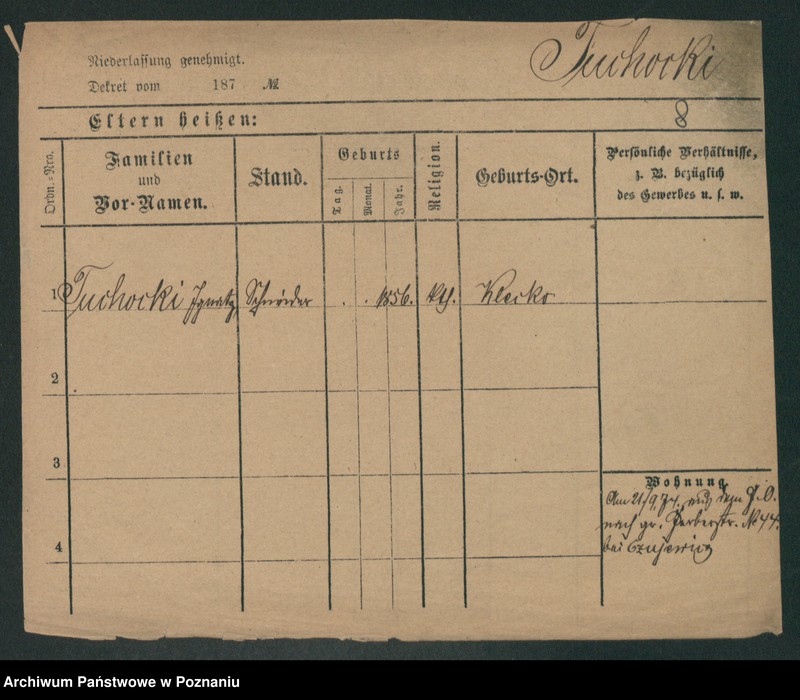 Niederlassung genehmigt.
Tuchocki
Dekret vom 187 №
8
Eltern heißen:
Ordn.-Nro.
Familien
und
Vor-Namen.
Stand.
Geburts
Tag.
Monat.
Jahr.
Religion.
Geburts-Ort.
Persönliche Verhältnisse,
z. B. bezüglich
des Gewerbes u. s. w.
1 Tuchocki Ignatz Schneider . . 1856. kth. Klecko
2
3
4
Wohnung
Am 21/9 74. aus dem J. O.
nach gr. Gerberstr. № 44.
bei
Archiwum Państwowe w Poznaniu